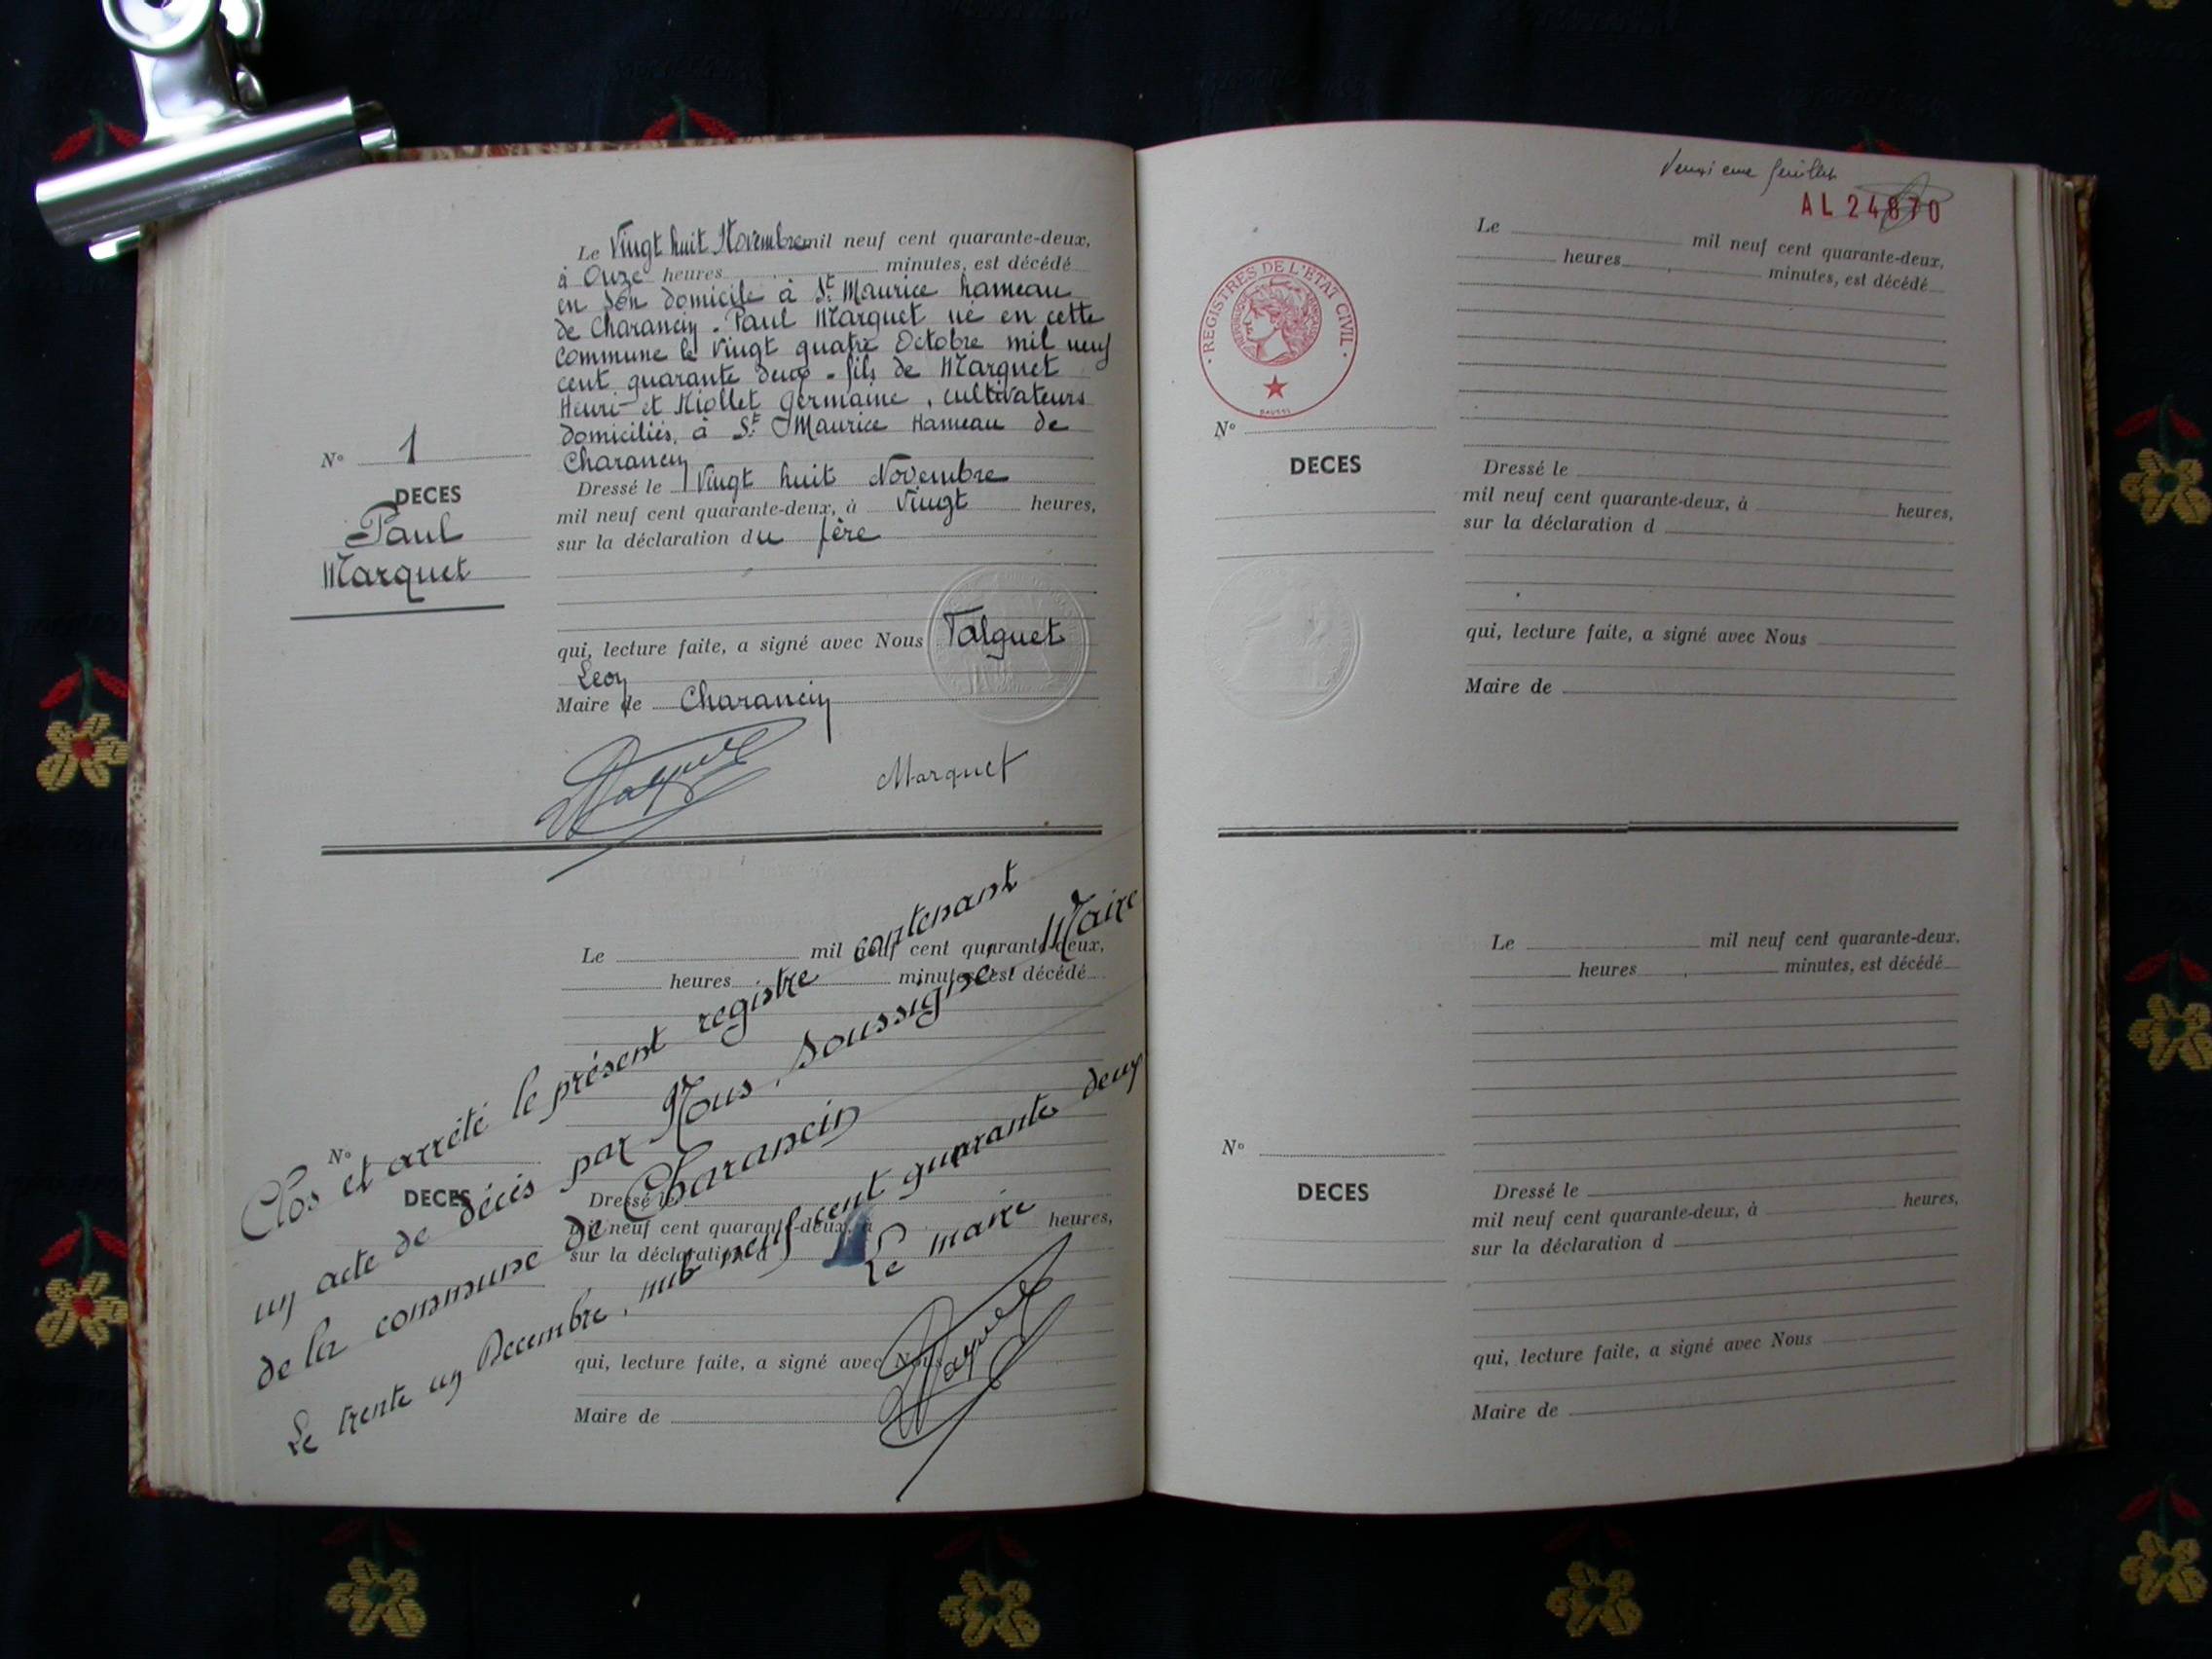 Le Vingt huit Novembre mil neuf cent quarante-deux,
à Onze heures minutes, est décédé
en son domicile à St Maurice hameau
de Charancin. Paul Marquet né en cette
commune le vingt quatre Octobre mil neuf
cent quarante deux - fils de Marquet
Henri et Germaine, cultivateurs
domiciliés, à St Maurice Hameau de
Charancin
N° 1
DECES
Paul
Marquet
Dressé le Vingt huit Novembre
mil neuf cent quarante-deux, à Vingt heures,
sur la déclaration du père
qui, lecture faite, a signé avec Nous
Leon
Maire de Charancin
Marquet
Le mil neuf cent quarante-deux,
heures minutes, est décédé
N°
DECES
Dressé le
mil neuf cent quarante-deux, à heures,
sur la déclaration d
qui, lecture faite, a signé avec Nous
Maire de
Clos et arrêté le présent registre contenant
un acte de décès par Nous, soussigné, Maire
de la commune de Charancin
Le trente un Decembre, mil neuf cent quarante deux
Le maire
AL 24870
REGISTRES DE L'ETAT CIVIL
Le mil neuf cent quarante-deux,
heures minutes, est décédé
N°
DECES
Dressé le
mil neuf cent quarante-deux, à heures,
sur la déclaration d
qui, lecture faite, a signé avec Nous
Maire de
Le mil neuf cent quarante-deux.
heures minutes, est décédé
N°
DECES
Dressé le
mil neuf cent quarante-deux, à heures,
sur la déclaration d
qui, lecture faite, a signé avec Nous
Maire de